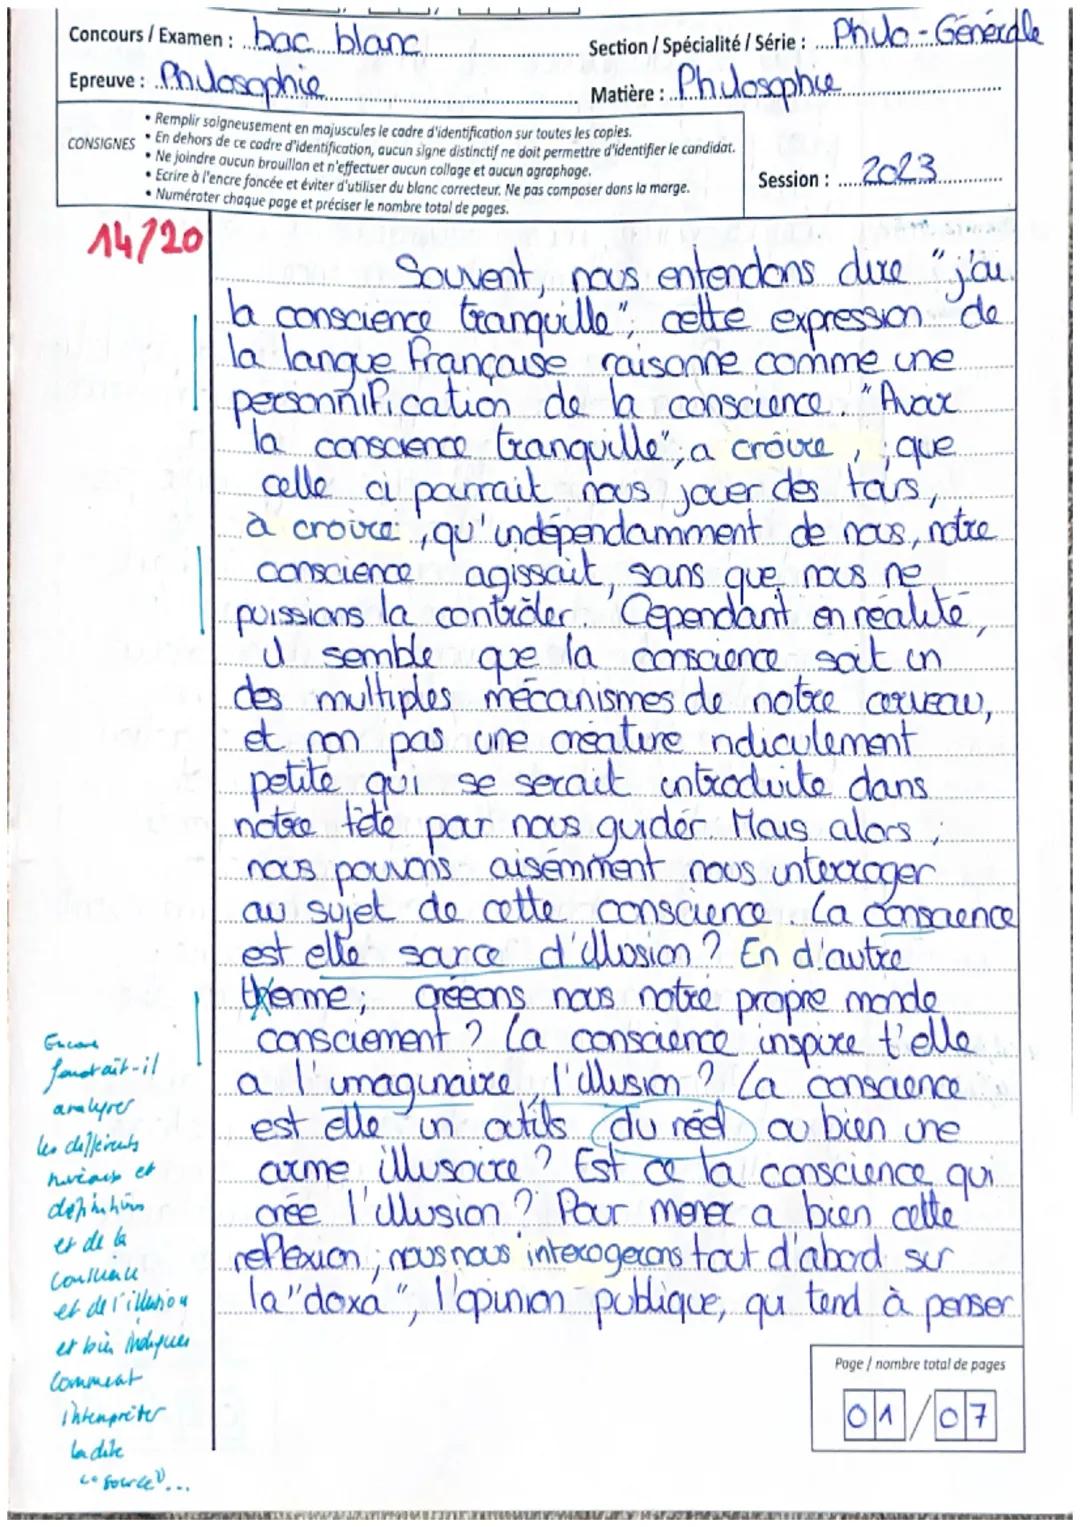 Concours / Examen : bac blanc
Section / Spécialité / Série : Philo - Générale
Epreuve : Philosophie
Matière : Philosophie
CONSIGNES
• Remplir soigneusement en majuscules le cadre d'identification sur toutes les copies.
• En dehors de ce cadre d'identification, aucun signe distinctif ne doit permettre d'identifier le candidat.
• Ne joindre aucun brouillon et n'effectuer aucun collage et aucun agraphage.
• Ecrire à l'encre foncée et éviter d'utiliser du blanc correcteur. Ne pas composer dans la marge.
• Numéroter chaque page et préciser le nombre total de pages.
Session : 2023
14/20
Souvent, nous entendons dire "j'ai
la conscience tranquille", cette expression de
la langue française raisonne comme une
personnification de la conscience. "Avoir
la conscience tranquille"; a croire, que
celle ci pourrait nous jouer des tours,
à croire, qu'indépendamment de nous, notre
conscience agissait, sans que nous ne
puissions la contrôler. Cependant en réalité,
il semble que la conscience soit un
des multiples mécanismes de notre cerveau,
et non pas une créature ridiculement
petite qui se serait introduite dans
notre tête pour nous guider. Mais alors,
nous pouvons aisémment nous interroger
au sujet de cette conscience. La conscience
est elle source d'illusion ? En d'autre
terme, créeons nous notre propre monde
consciement ? La conscience inspire t'elle
a l'imaginaire, l'illusion ? La conscience
est elle un outils du réel ou bien une
arme illusoire ? Est ce la conscience qui
crée l'illusion ? Pour mener a bien cette
reflexion, nous nous interogerons tout d'abord sur
la "doxa", l'opinion publique, qui tend à penser
Encore
faudrait-il
analyser
les différents
niveaux et
définitions
et de la
conscience
et de l'illusion
et bien indiquer
comment
interpréter
la dite
"source"...
Page / nombre total de pages
01 / 07